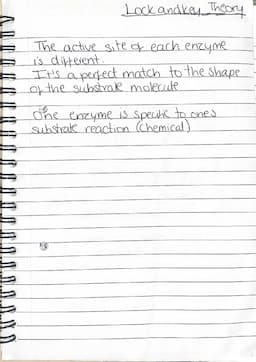 Lock and key Theory
The active site of each enzyme
is different.
It's a perfect match to the shape
of the substrate molecule
One enzyme is specific to ones
substrate reaction (chemical)